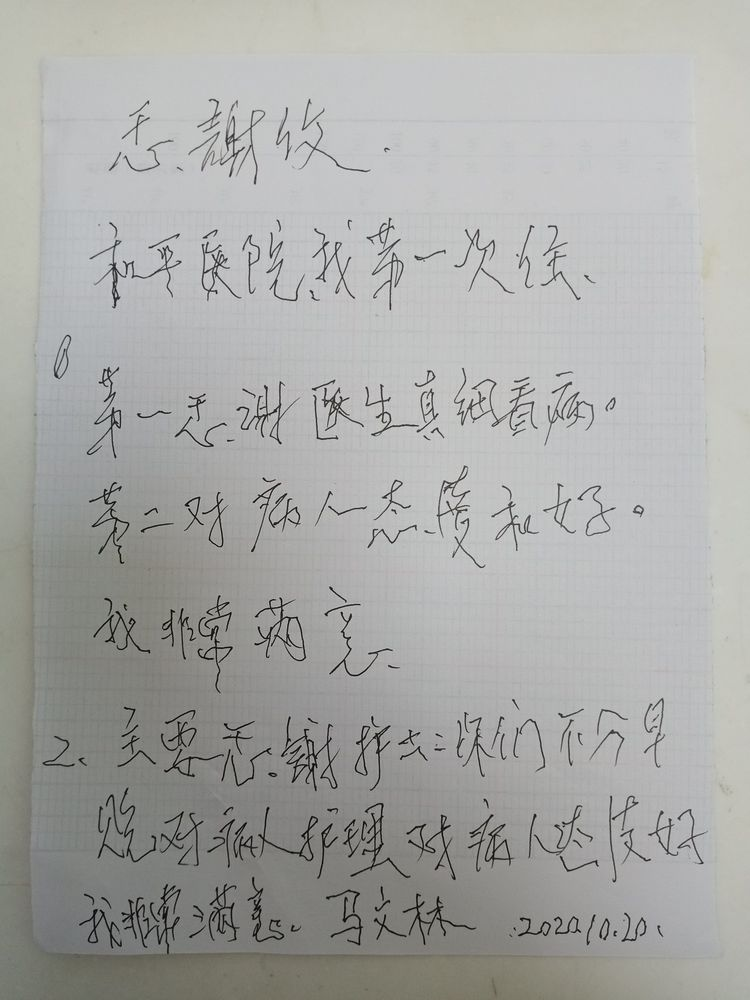 感謝信.
和平医院,我第一次住、
1
第一感谢医生真细看病。
第二对病人态度和好。
我非常满意、
2、主要感謝护士:她们不分早
晚对病人护理对病人态度好
我非常满意、马文林 .2020.10.20.